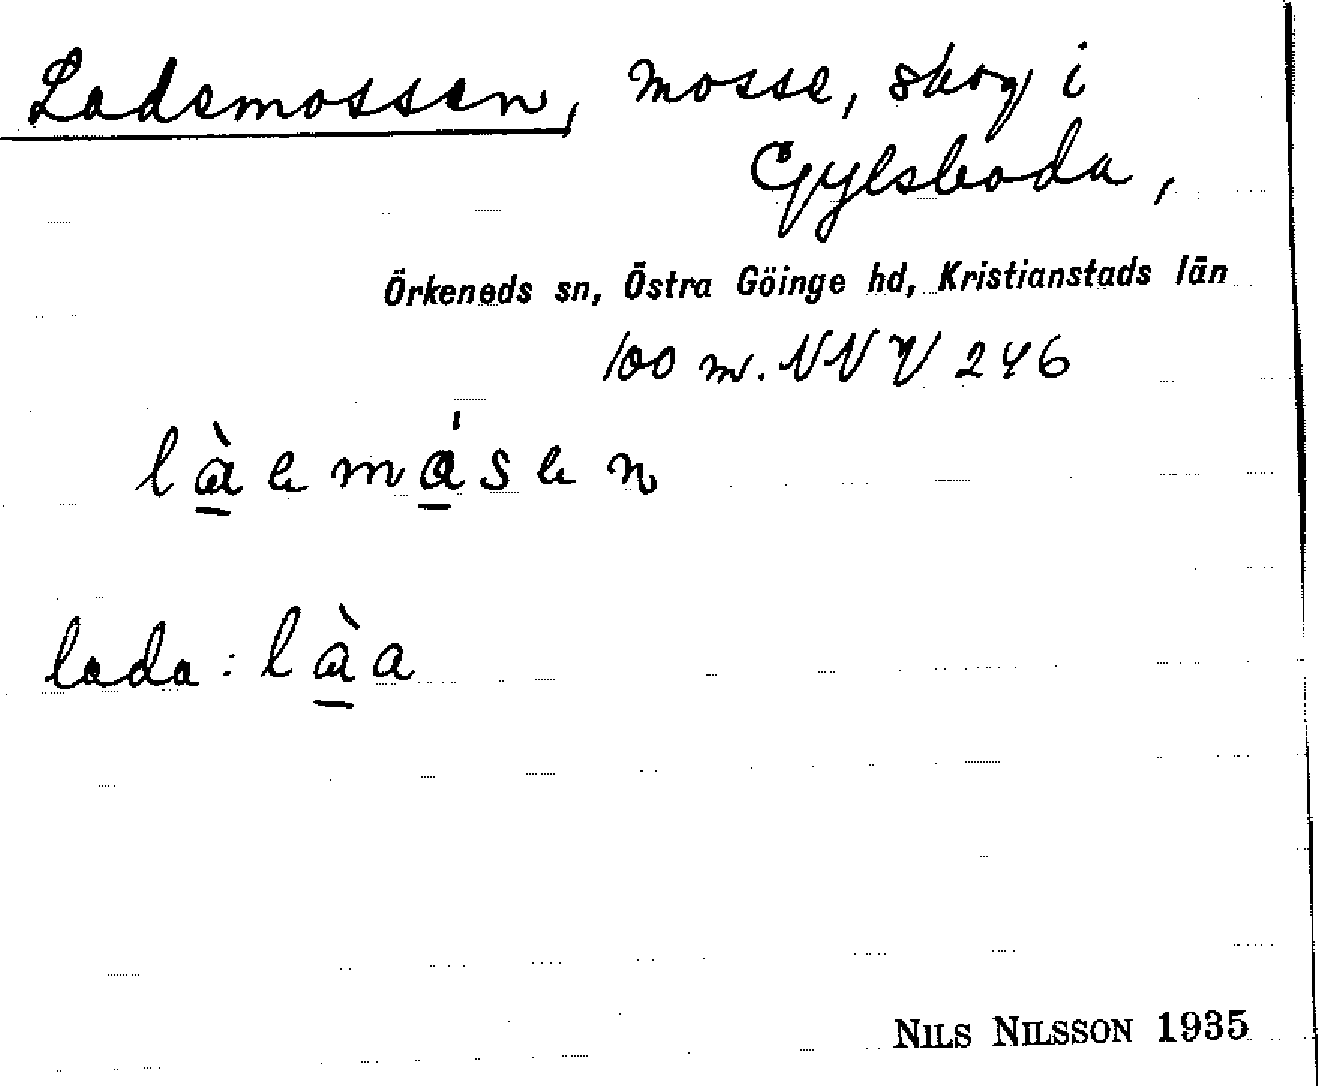 Lademossen, mosse, skog i
Gylsboda,
Örkeneds sn, Östra Göinge hd, Kristianstads län
100 m. NNV 246
làemásen
lada: làa
NILS NILSSON 1935